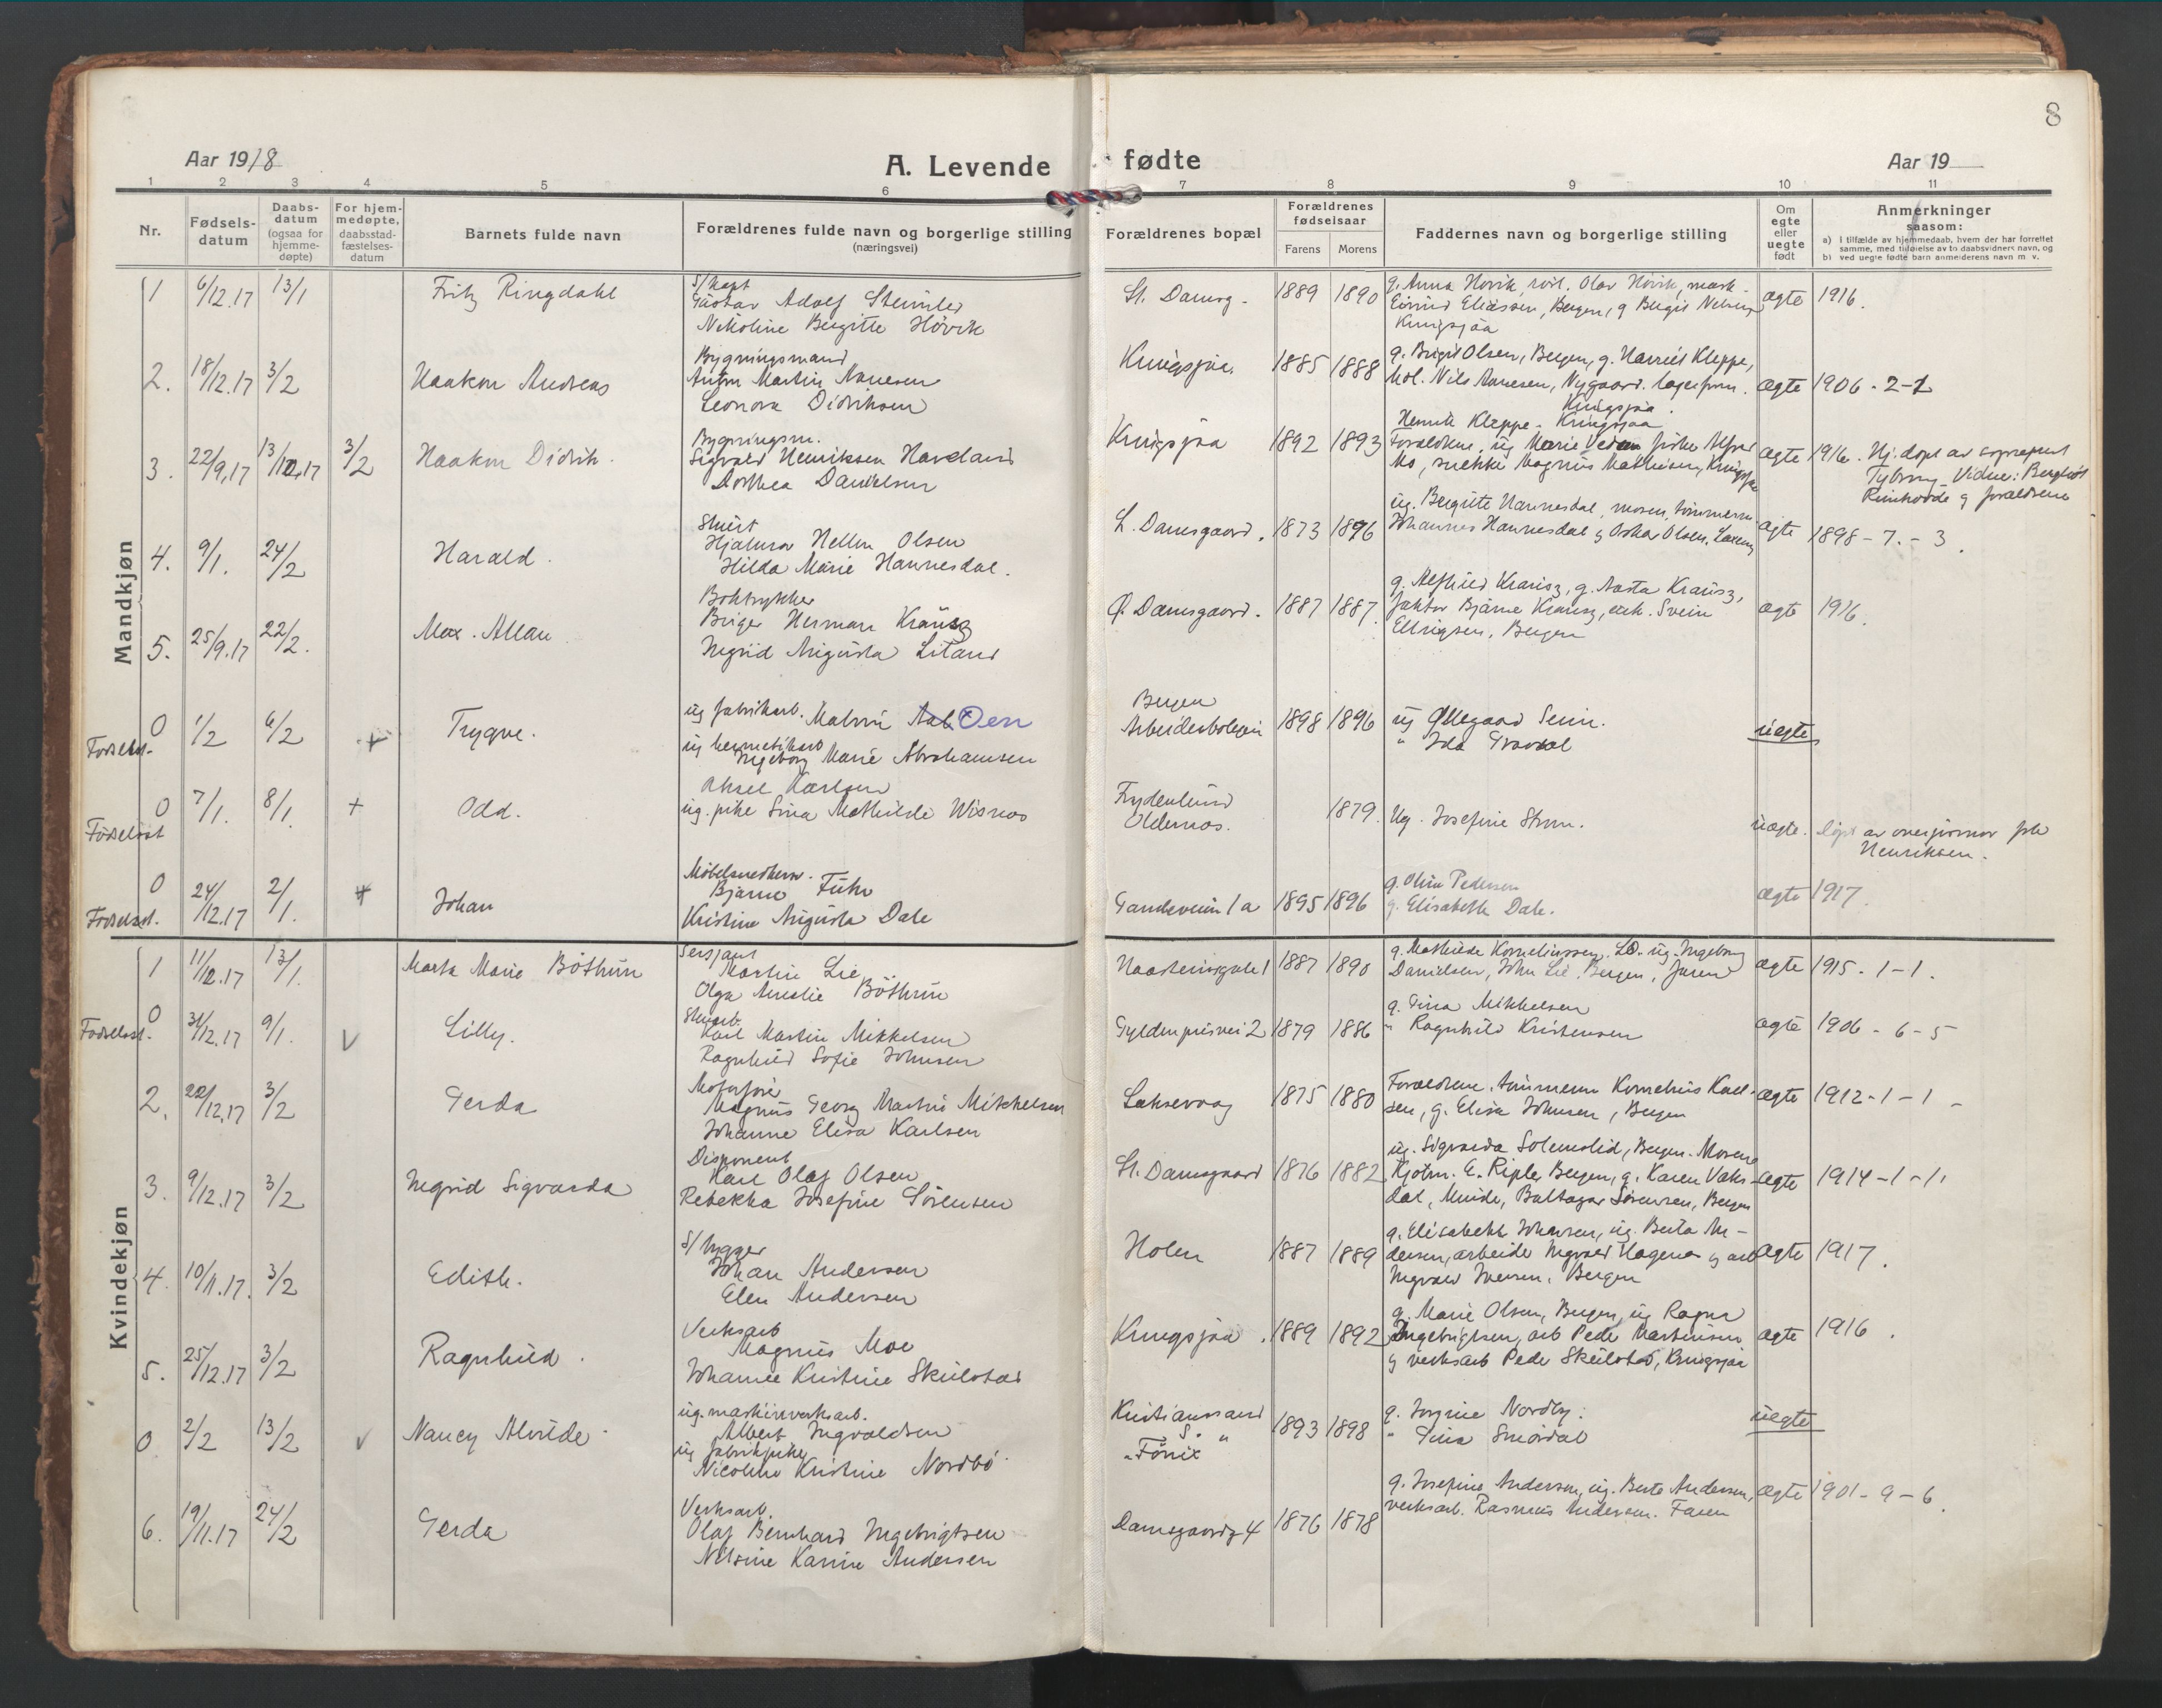 8
Aar 1918
A. Levende fødte
Aar 19
1 2 3 4 5 6 7 8 9 10 11
Nr.
Fødsels-
datum
Daabs-
datum
(ogsaa for
hjemme-
døpte)
For hjem-
medøpte,
daabsstad-
fæstelses-
datum
Barnets fulde navn
Forældrenes fulde navn og borgerlige stilling
(næringsvei)
Forældrenes bopæl
Forældrenes
fødselsaar
Farens Morens
Faddernes navn og borgerlige stilling
Om
egte
eller
uegte
født
Anmerkninger
saasom:
a) I tilfælde av hjemmedaab, hvem der har forrettet
samme, med tilføielse av to daabsvidners navn, og
b) ved uegte fødte barn anmelderens navn m. v.
Mandkjøn
1 6/12.17 13/1 Fritz Ringdahl
Gustav Adolf
Nikoline Bergitte Hövik
St. Damsg. 1889 1890
g. Anna Hövik, Olav Hövik, mask.
Eivind Eliassen, Bergen, g Birgit
Kringsjaa
ægte 1916.
2. 18/12.17 3/2 Haakon Andreas
Bygningsmand
Anton Martin
Leonora Didriksen
Kringsjaa. 1885 1888
g. Birgit Olsen, Bergen, g. Harriet Kleppe,
Nils, Nygaard.
Kringsjaa.
Henrik Kleppe - Kringsjaa
ægte 1906 - 2-1
3. 22/9.17 13/12.17 3/2 Haakon Didrik.
Bygningsm.
Sigvald Henriksen
Dorthea Danielsen
Kringsjaa 1892 1893
Forældrene, ug Marie, fisker Alfred
Mo, snekker Magnus Mathisen, Kringsjaa
ægte 1916. Hj.døpt av
Vidner: Bergliot
Rinhovde og forældrene
4. 9/1. 24/2 Harald.
Hjalmar Olsen
Hilda Marie Hannesdal.
L. Damsgaard. 1873 1876
ug. Birgitte Hannesdal, moren, tømmerm
Johannes Hannesdal og Oskar Olsen, Laxevg
ægte 1898 - 7. - 3.
5. 25/9.17 22/2. Max. Allan.
Boktrykker
Birger Herman Krausz
Ingrid Augusta
Ø. Damsgaard. 1887 1887.
g. Krausz, g. Aasta Krausz,
faktor Bjarne Krausz, Svein
Ellingsen, Bergen
ægte 1916.
0 Fødselsst. 1/2 6/2 + Trygve.
ug fabrikarb. Malvin Oen
ug hermetikarb
Ingeborg Marie Abrahamsen
Bergen
Arbeiderboligen 1898 1896
ug Øllegaard
" Ida
uegte
0 Fødselsst 7/1. 8/1. + Odd.
Aksel Karlsen
ug. pike Sina Mathilde
Frydenlund
Oldernes. 1879.
Ug. Josefine Strøm.
uægte. døpt av overjormor frk
Henriksen.
0 Fødselsst. 24/12.17 2/1. + Johan
Bjarne
Kristine Augusta Dale
1 a 1895 1896
g. Olina Pedersen
g. Elisabeth Dale.
ægte 1917.
Kvindekjøn
1 11/12.17 13/1. Marta Marie Böthun
Sersjant
Martin Lie
Olga Amalie Böthun
1887 1890
g. Mathilde Korneliussen, LD. ug. Ingeborg
Danielsen, John Lie, Bergen, faren
ægte 1915. - 1 - 1.
0 Fødselsst. 31/12.17 9/1. V Lilly.
Karl Martin Mikkelsen
Ragnhild Sofie Johnsen
Gyldenprisvei 2 1879 1886
g. Tina Mikkelsen
" Ragnhild Kristensen
ægte 1906 - 6 - 5
2. 22/12.17 3/2 Gerda
Magnus Georg Martin Mikkelsen
Johanne Elisa Karlsen
Laksevaag 1875 1880
Forældrene. tømmerm Kornelius Karl-
sen, g. Elisa Johnsen, Bergen
ægte 1912 - 1 - 1 -
3. 9/12.17 3/2 Ingrid Sigvarda
Disponent
Karl Olaf Olsen
Rebekka Josefine Sörensen
St. Damsgaard 1876 1882
ug. Sigvarda Solemslid, Bergen. Moren
Kjøbm. E. Riple Bergen, g. Karen Vaks-
dal, Minde, Baltazar Sørensen, Bergen
ægte 1914 - 1 - 1.
4. 10/11.17 3/2 Edith.
S/bygger
Johan Andersen
Elen Andersen
Holen 1887 1889
g. Elisabeth Johansen, ug. Berta An-
dersen, arbeider Ingvald Hagenes og arb
Ingvald Iversen, Bergen
ægte 1917.
5. 25/12.17 3/2 Ragnhild.
Verksarb
Magnus Moe
Johanne Kristine Skeilstad
Kringsjaa. 1889 1892
g. Marie Olsen, Bergen, ug Ragna
Ingebrigtsen, arb Peder Martinsen
og verksarb Peder Skeilstad, Kringsjaa
ægte 1916.
0 2/2 13/2 V Nancy Alvilde.
ug. maskinverksarb.
Albert Ingvaldsen
ug fabrikpike
Nicoline Kristine Nordbö
Kristianssand
S. "
"Fönix" 1893 1898
g. Jorgine Nordby.
" Tina
uegte
6. 19/11.17 24/2 Gerda
Verksarb.
Olaf Bernhard Ingebrigtsen
Nilsine Karine Andersen
Damsgaardsg 4 1876 1878
g. Josefine Andersen, ug. Berta Andersen,
verksarb. Rasmus Andersen. Faren
ægte 1901 - 9 - 6.